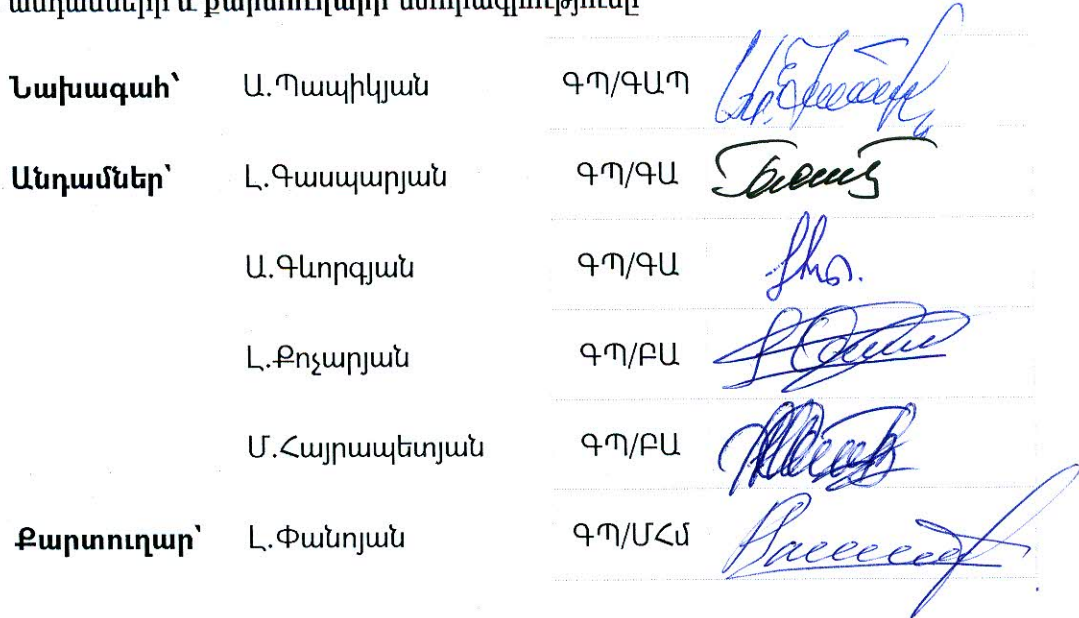 անդամների և քարտուղարի ստորագրությունը
Նախագահ՝ Ա.Պապիկյան ԳՊ/ԳԱՊ
Անդամներ՝ Լ.Գասպարյան ԳՊ/ԳԱ
Ա.Գևորգյան ԳՊ/ԳԱ
Լ.Քոչարյան ԳՊ/ԲԱ
Մ.Հայրապետյան ԳՊ/ԲԱ
Քարտուղար՝ Լ.Փանոյան ԳՊ/ՄՀմ